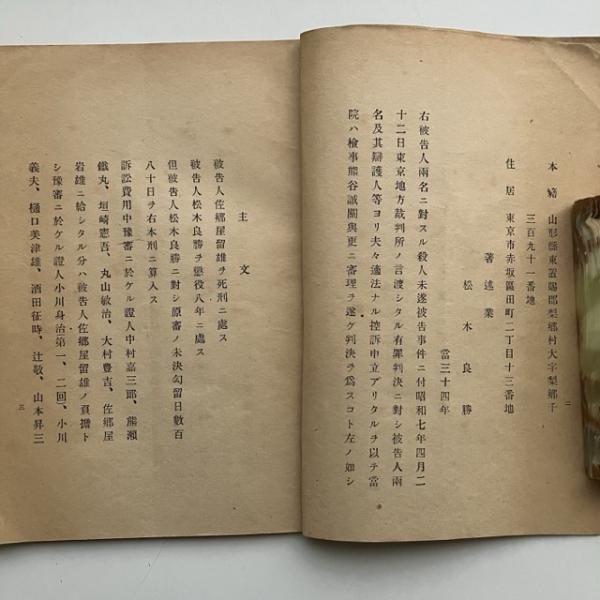 二
本籍 山形縣東置賜郡梨郷村大字梨郷千
三百九十一番地
住居 東京市赤坂區田町二丁目十三番地
著述業
松木良勝
當三十四年
右被告人兩名ニ對スル殺人未遂被告事件ニ付昭和七年四月二
十二日東京地方裁判所ノ言渡シタル有罪判決ニ對シ被告人兩
名及其辯護人等ヨリ夫々適法ナル控訴申立アリタルヲ以テ當
院ハ檢事熊谷誠關與更ニ審理ヲ遂ケ判決ヲ爲スコト左ノ如シ
主文
被告人佐郷屋留雄ヲ死刑ニ處ス
被告人松木良勝ヲ懲役八年ニ處ス
但被告人松木良勝ニ對シ原審ノ未決勾留日數百
八十日ヲ右本刑ニ算入ス
訴訟費用中豫審ニ於ケル證人中村嘉三郎、熊瀬
鐵丸、垣崎憲吾、丸山敏治、大村豊吉、佐郷屋
岩雄ニ給シタル分ハ被告人佐郷屋留雄ノ負擔ト
シ豫審ニ於ケル證人小川身治(第一、二回、小川
義夫、樋口美津雄、酒田征時、辻敬、山本昇三
三